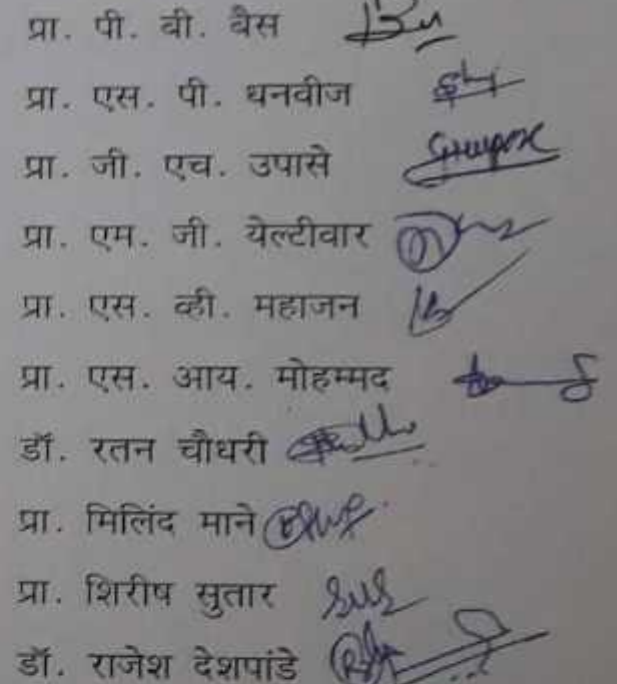 प्रा. पी. वी. वैस
प्रा. एस. पी. धनवीज
प्रा. जी. एच. उपासे
प्रा. एम. जी. येल्टीवार
प्रा. एस. व्ही. महाजन
प्रा. एस. आय. मोहम्मद
डॉ. रतन चौधरी
प्रा. मिलिंद माने
प्रा. शिरीष सुतार
डॉ. राजेश देशपांडे